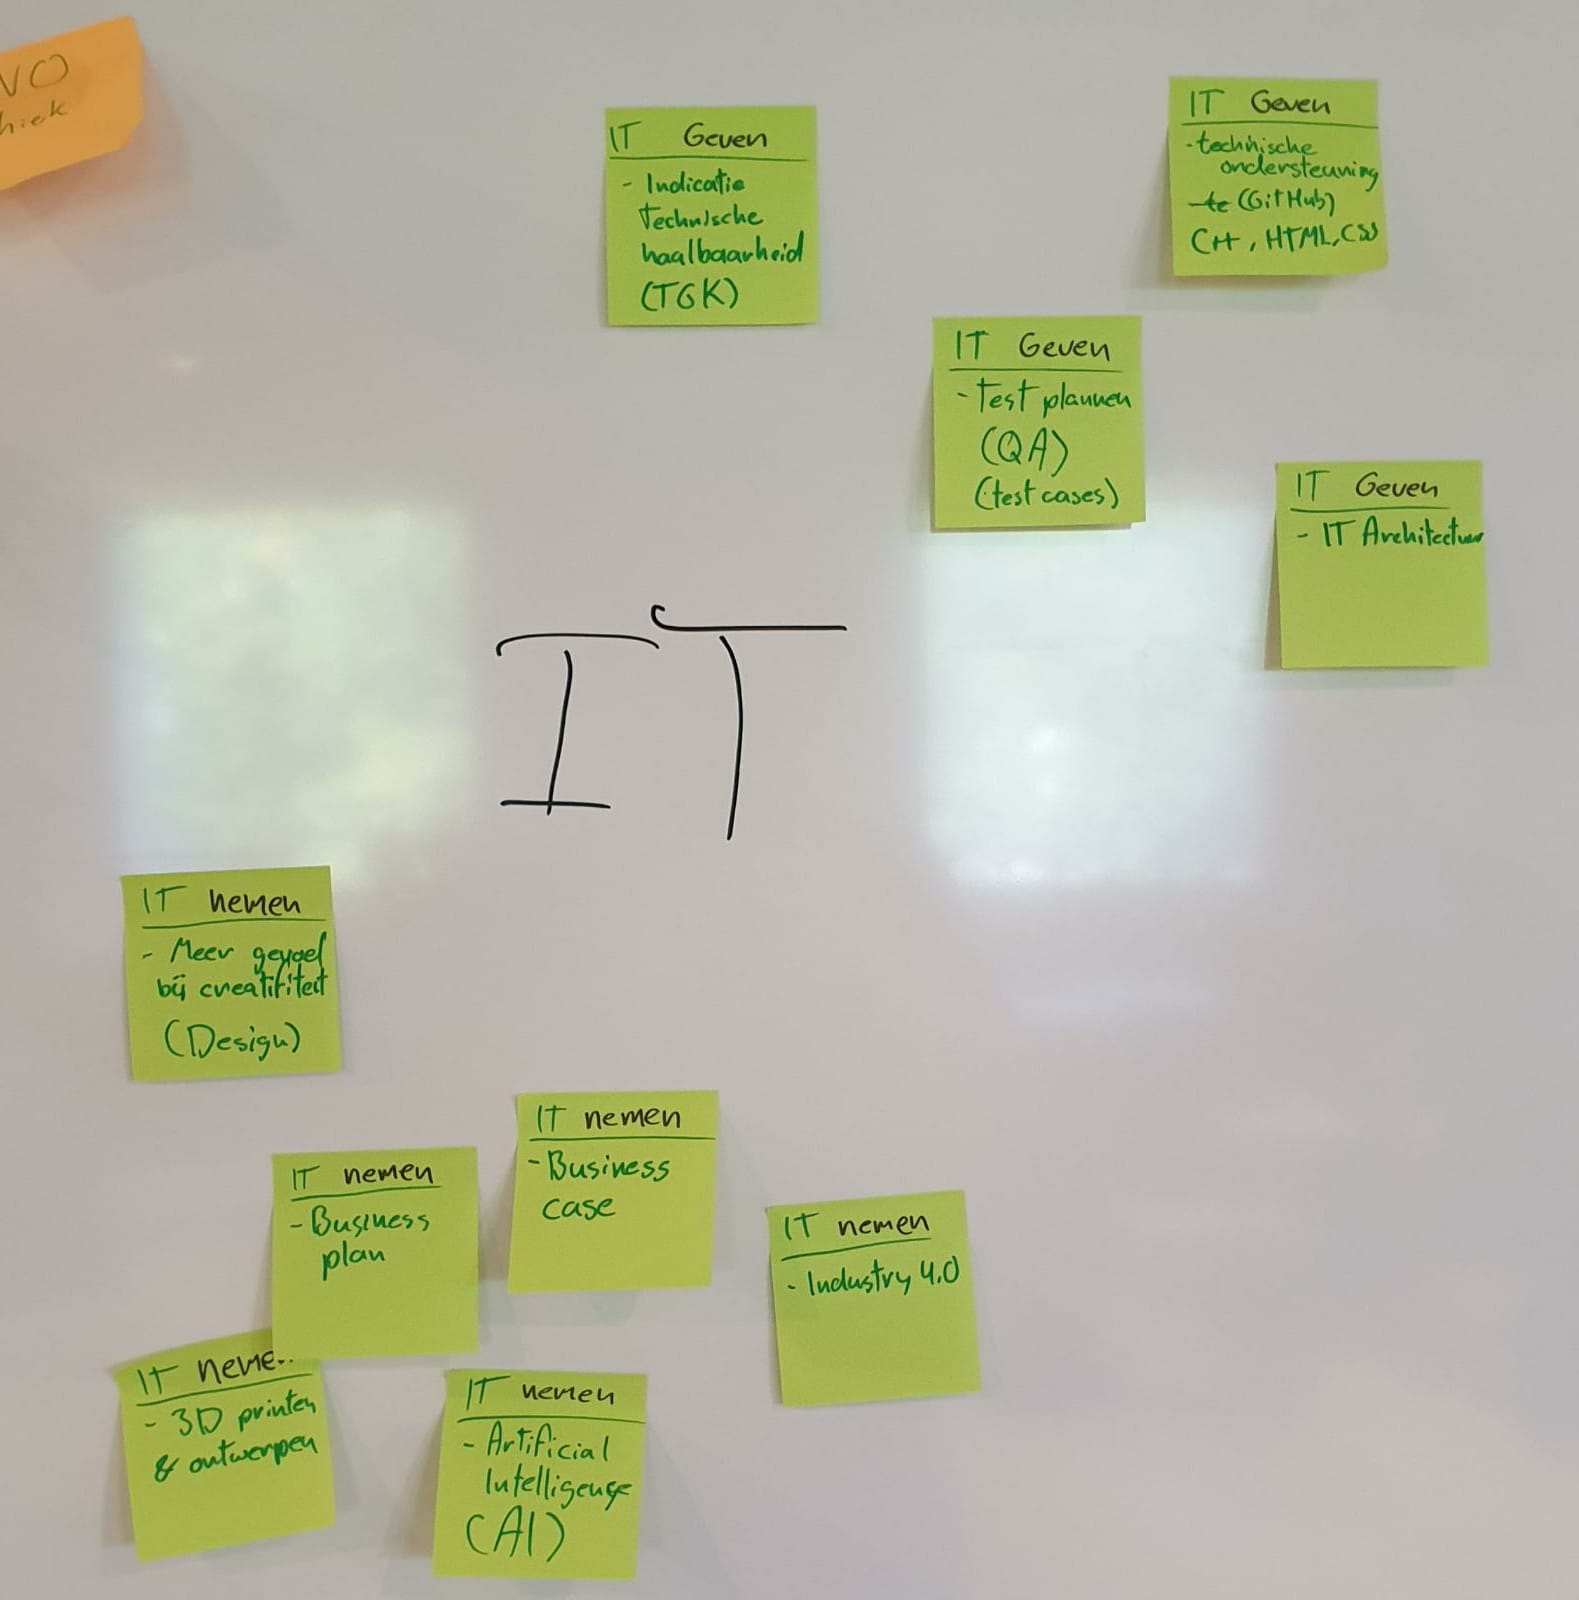 VO
hiek
IT Geven
- Indicatie
Technische
haalbaarheid
(TGK)
IT Geven
- technische
ondersteuning
te (GitHub)
C++, HTML, CSS
IT Geven
- Test plannen
(QA)
(test cases)
IT Geven
- IT Architectuur
IT
IT nemen
- Meer gevoel
bij creatifiteit
(Design)
IT nemen
- Business
case
IT nemen
- Business
plan
IT nemen
- Industry 4.0
IT neme
- 3D printen
& ontwerpen
IT nemen
- Artificial
Intelligence
(AI)